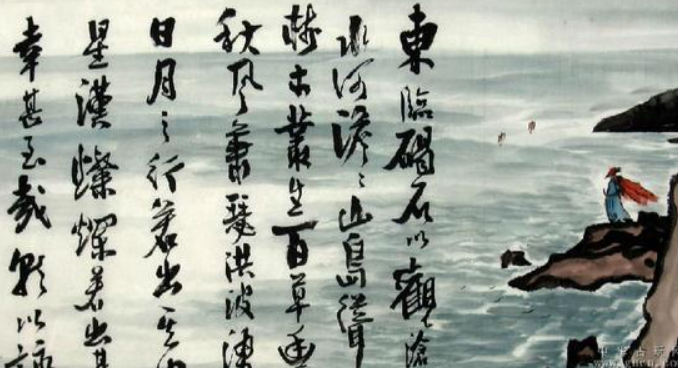 東臨碣石以觀滄
水河澹〻山島聳
樹木叢生百草豐
秋風蕭瑟洪波湧
日月之行若出其
星漢燦爛若出其
幸甚至哉歌以詠
中华古玩
www.gucn.com